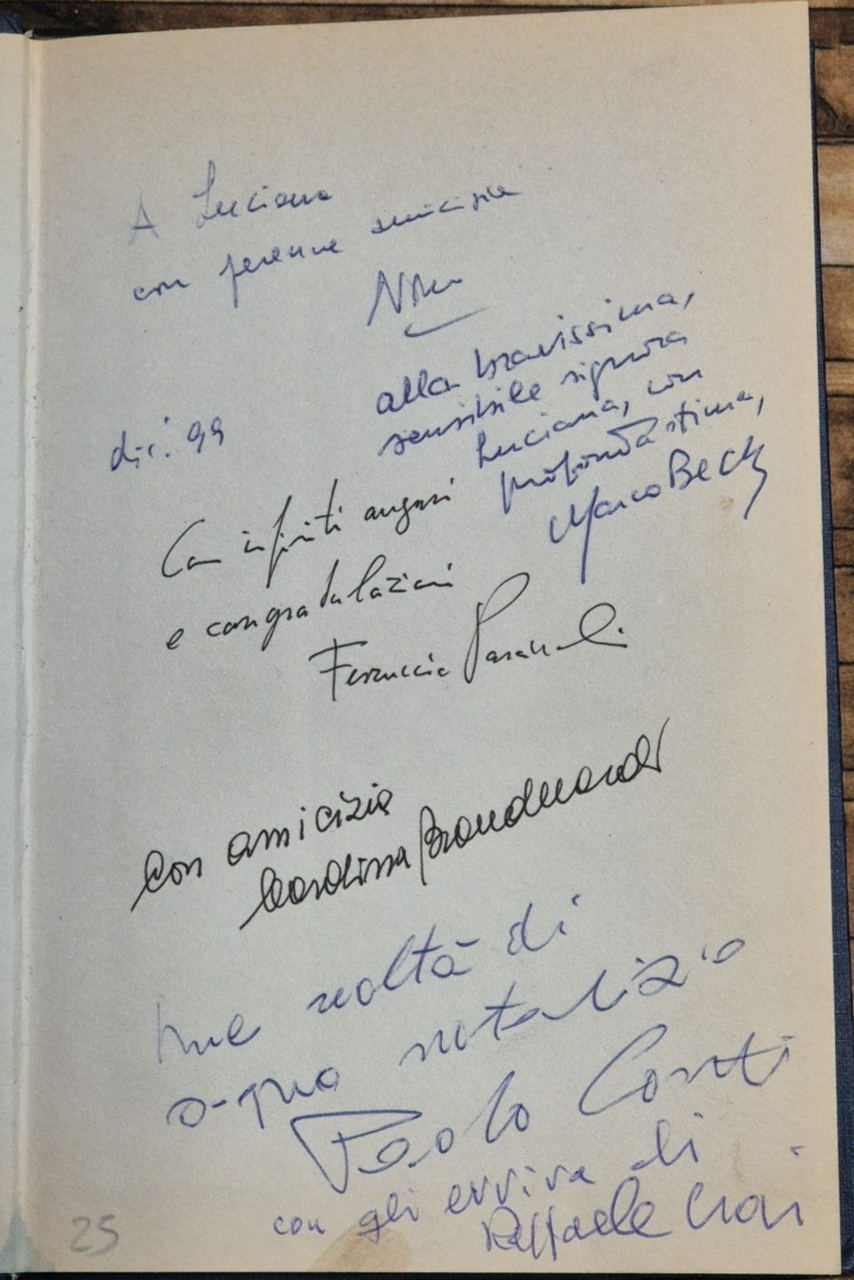 A Luciana
con perenne amicizia
dic. 99
alla bravissima,
sensibile signora
Luciana, con
profonda stima,
Marco Beck
Con infiniti auguri
e congratulazioni
Ferruccio Parazzoli
Con amicizia
una realtà di
sogno natalizio
Paolo Conti
con gli evviva di
Raffaele Crovi
25